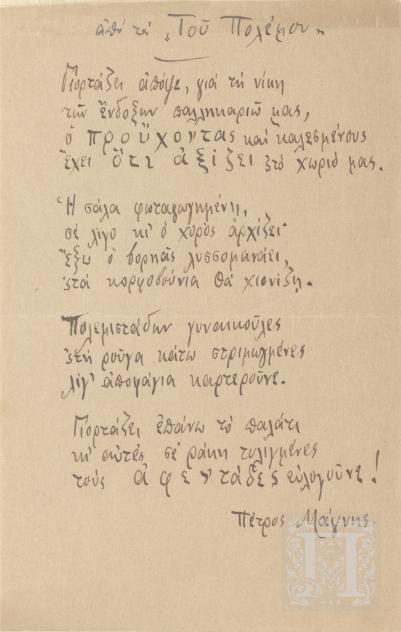 ἀπό τά „Τοῦ Πολέμου„
Γιορτάζει ἀπόψε, γιά τή νίκη
τῶν ἔνδοξων παλληκαριῶ μας,
ὁ προὔχοντας καί καλεσμένους
ἔχει ὅτι ἀξίζει στό χωριό μας.
Ἡ σάλα φωταγωγημένη,
σέ λίγο κι' ὁ χορός ἀρχίζει·
ἔξω ὁ βορηᾶς λυσσομανάει,
στά κορφοβούνια θά χιονίζῃ.
Πολεμιστάδων γυναικοῦλες
στή ροῦγα κάτω στριμωγμένες
λίγ' ἀποφάγια καρτεροῦνε.
Γιορτάζει ἐπάνω τό παλάτι
κι' αὐτές σέ ράκη τυλιγμένες
τούς ἀφεντάδες εὐλογοῦνε!
Πέτρος Μάγνης.
Π